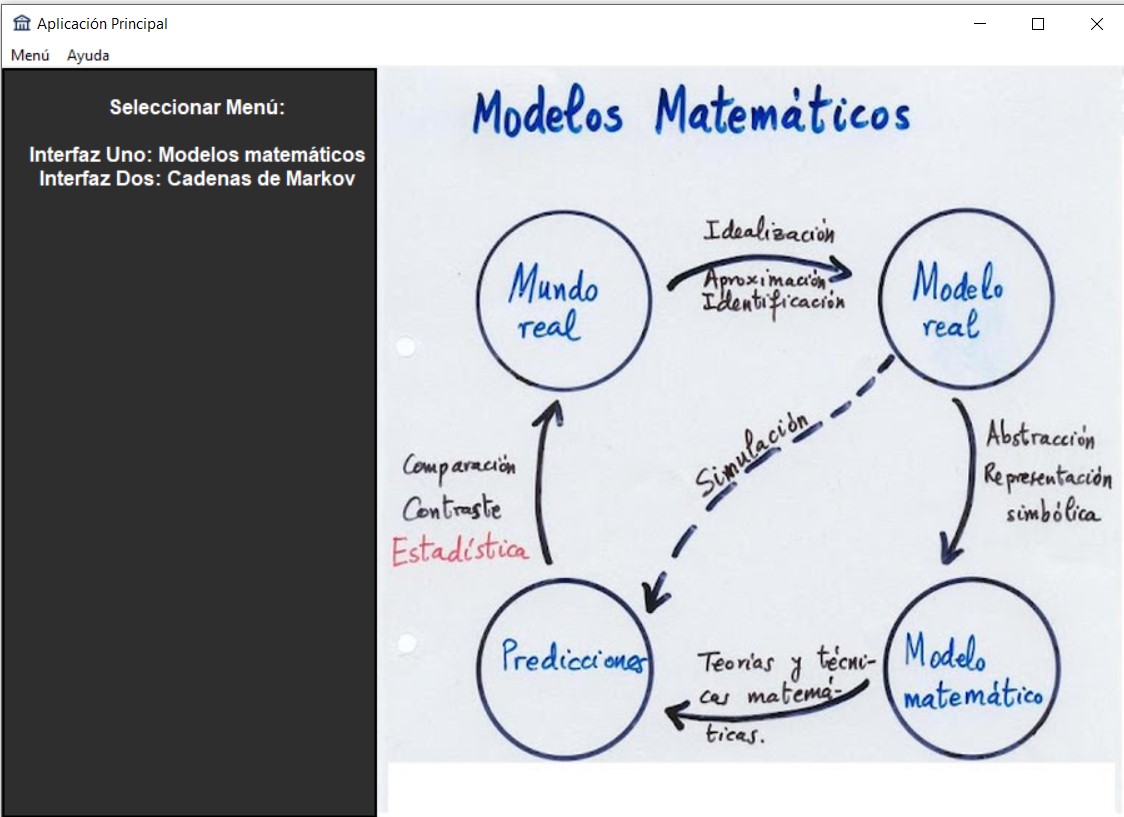 Aplicación Principal
Menú Ayuda
Seleccionar Menú:
Interfaz Uno: Modelos matemáticos
Interfaz Dos: Cadenas de Markov
Modelos Matemáticos
Mundo
real
Idealización
Aproximación
Identificación
Modelo
real
Simulación
Abstracción
Representación
simbólica
Comparación
Contraste
Estadística
Predicciones
Teorías y técni-
cas matemá-
ticas.
Modelo
matemático